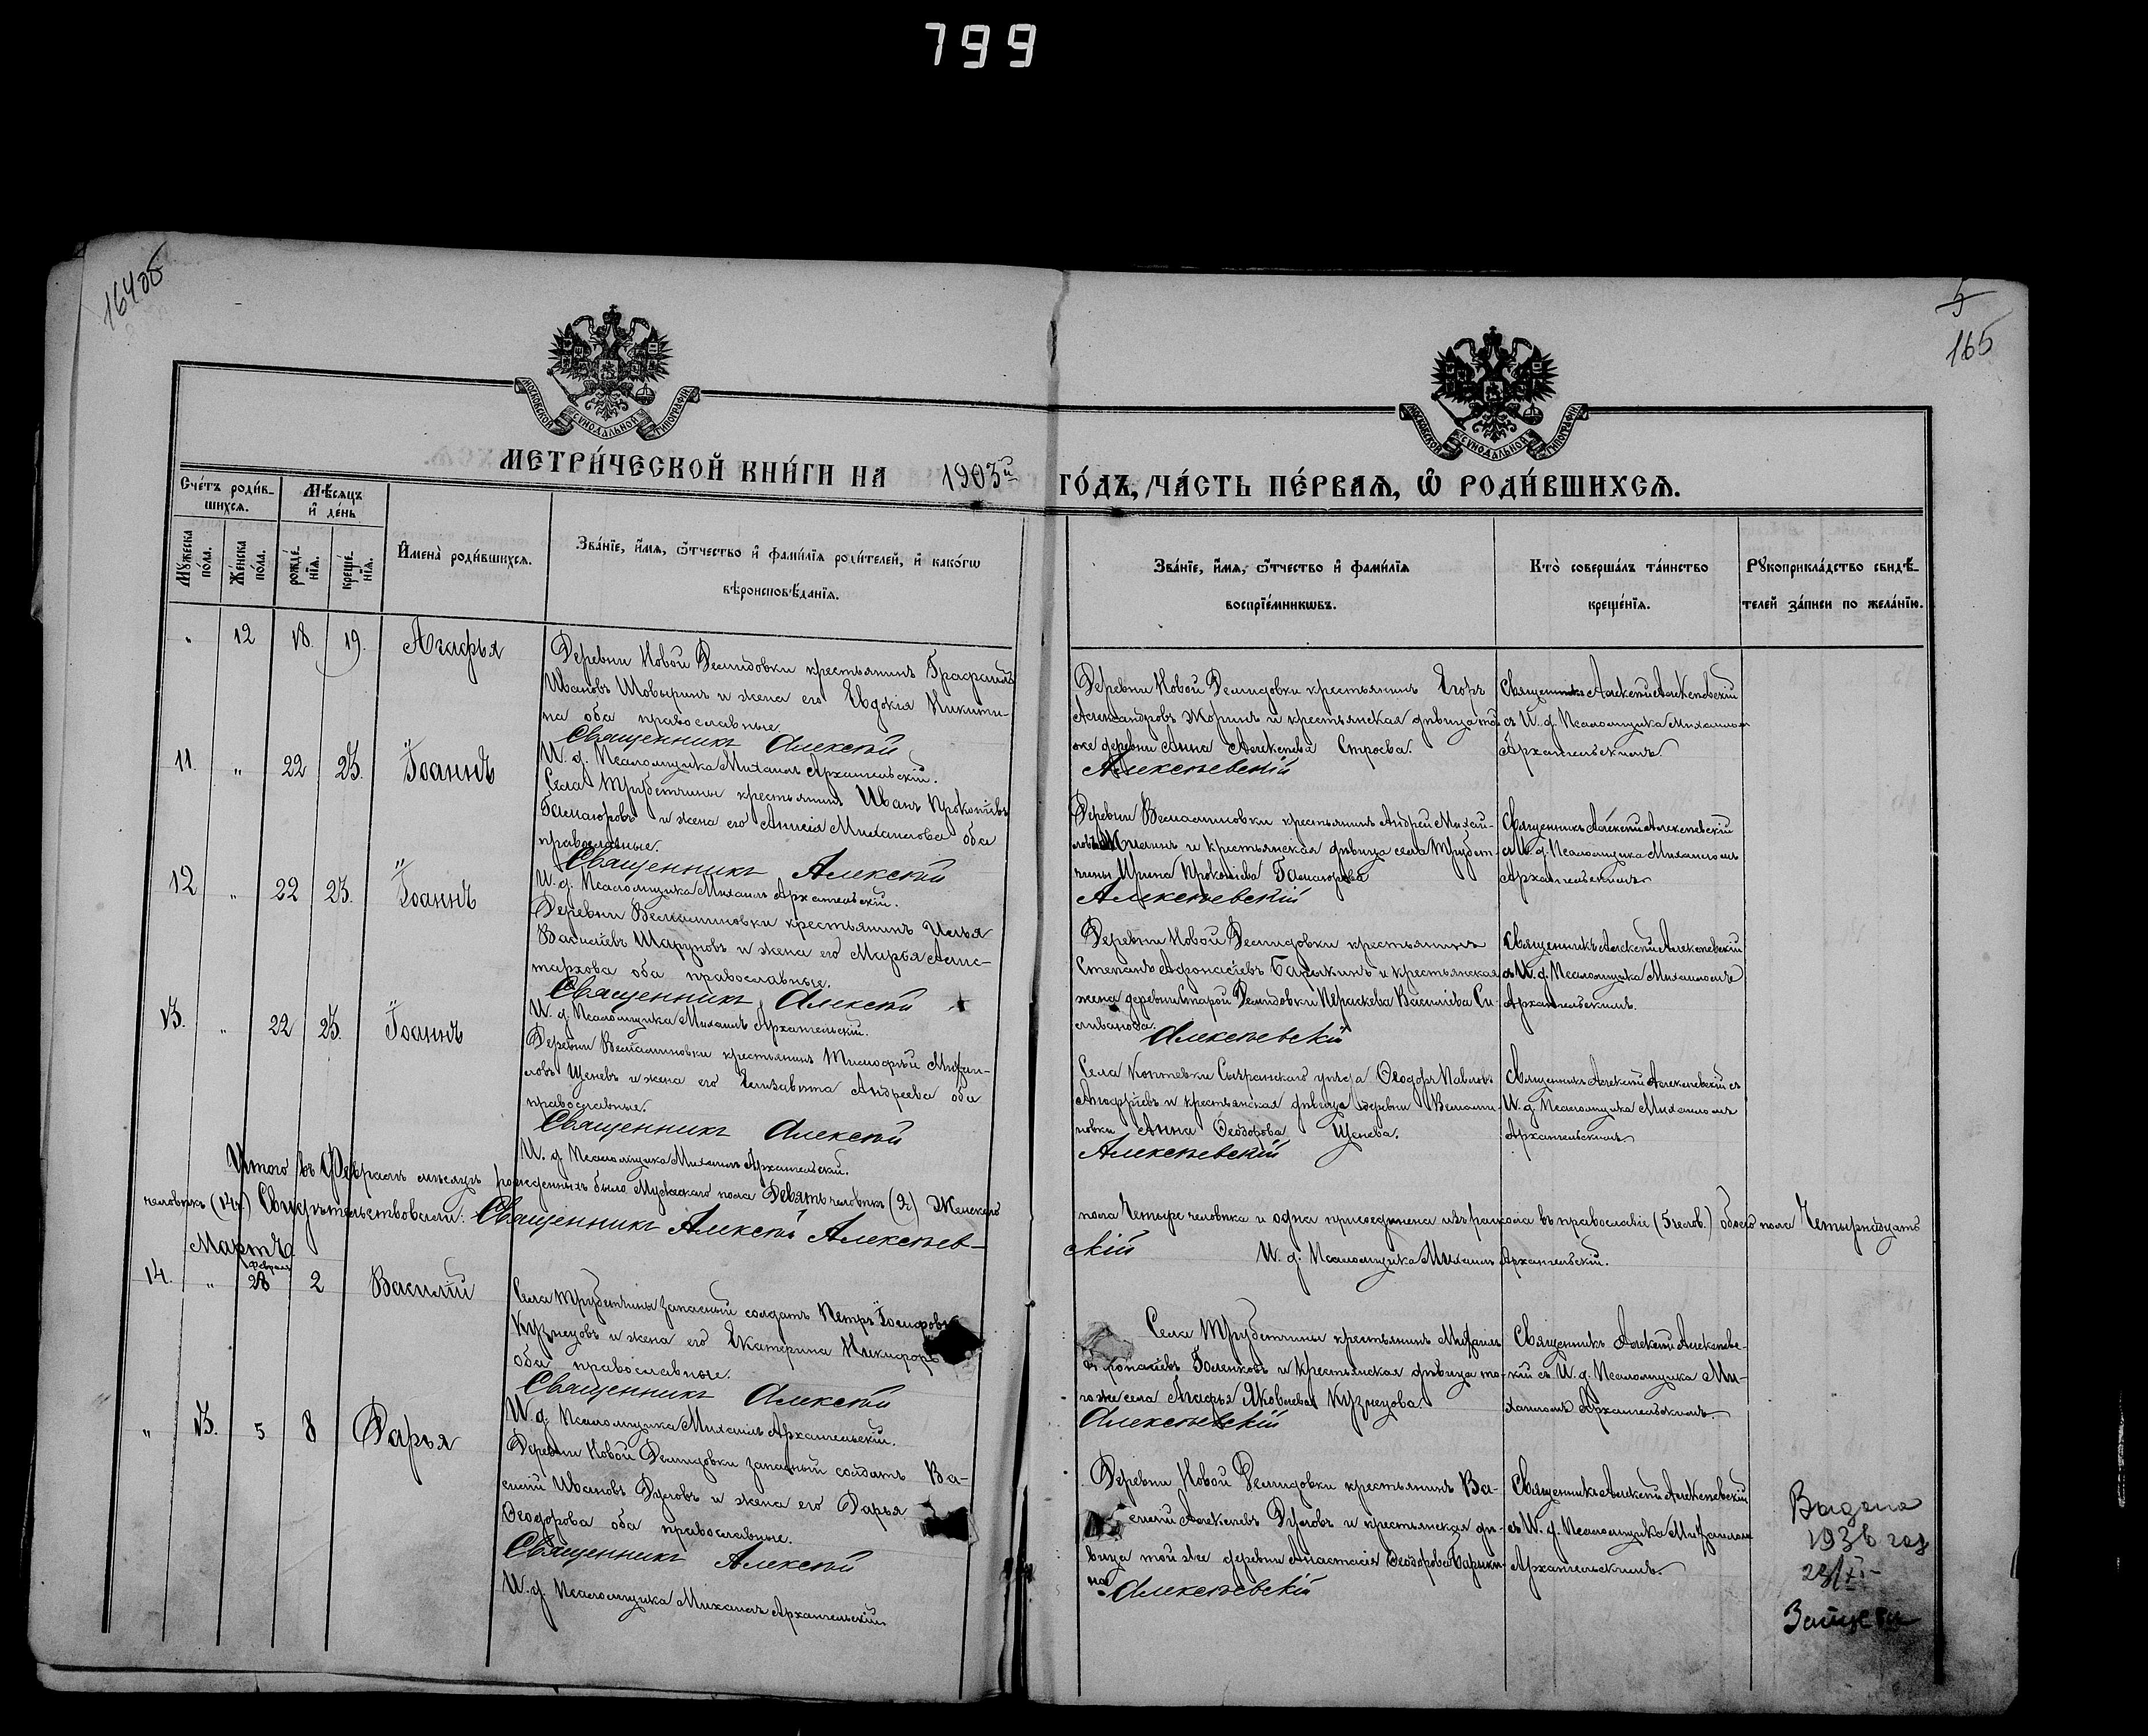 799
164об
5
165
МОСКОВСКОЙ СѴНОДАЛЬНОЙ ТИПОГРАФІИ
МОСКОВСКОЙ СѴНОДАЛЬНОЙ ТИПОГРАФІИ
МЕТРИ́ЧЕСКОЙ КНИ́ГИ НА 1903й ГО́ДЪ, ЧА́СТЬ ПЕ́РВАѦ, Ѽ РОДИ́ВШИХСѦ.
Сче́тъ роди́в-
шихсѧ.
Мѣ́сѧцъ
и҆ де́нь
Мꙋ́жеска
по́ла.
Же́нска
по́ла.
рожде́-
нїѧ.
креще́-
нїѧ.
И҆мена̀ роди́вшихсѧ.
Зва́нїе, и҆́мѧ, ѻ҆́тчество и҆ фами́лїѧ роди́телей, и҆ како́гѡ
вѣроисповѣ́данїѧ.
Зва́нїе, и҆́мѧ, ѻ҆́тчество и҆ фами́лїѧ
воспрїе́мникѡвъ.
Кто̀ соверша́лъ та́инство
креще́нїѧ.
Рꙋкоприкла́дство свидѣ́-
телей за́писи по жела́нїю.
" 12 18. 19. Агафья
Деревни Новой Демидовки крестьянинъ
Ивановъ Шовыринъ и жена его Евдокія Никити-
на оба православные.
Священникъ Алексѣй
И. д. Псаломщика Михаилъ Архангельскій.
Деревни Новой Демидовки крестьянинъ Егоръ
Александровъ Жоринъ и крестьянская дѣвица той
же деревни Анна Алексѣева Строева.
Алексѣевскій
Священникъ Алексѣй Алексѣевскій
съ И. д. Псаломщика Михаиломъ
Архангельскимъ.
11. " 22 23. Іоаннъ
Села Трубетчины крестьянинъ Иванъ Прокопіевъ
и жена его Анисія Михаилова оба
православные.
Священникъ Алексѣй
И. д. Псаломщика Михаилъ Архангельскій.
Деревни Вельяминовки крестьянинъ Андрей Михай-
ловъ и крестьянская дѣвица села Трубет-
чины Ирина Прокопіева
Алексѣевскій
Священникъ Алексѣй Алексѣевскій
съ И. д. Псаломщика Михаиломъ
Архангельскимъ
12 " 22 23. Іоаннъ
Деревни Вельяминовки крестьянинъ Илья
Василіевъ Шаруновъ и жена его Марья Арис-
тархова оба православные.
Священникъ Алексѣй
И. д. Псаломщика Михаилъ Архангельскій.
Деревни Новой Демидовки крестьянинъ
Степанъ Афонасіевъ Барыкинъ и крестьянская
жена деревни Старой Демидовки Параскева Василіева Си-
ливанова.
Алексѣевскій
Священникъ Алексѣй Алексѣевскій
съ И. д. Псаломщика Михаиломъ
Архангельскимъ.
13. " 22 23. Іоаннъ
Деревни Вельяминовки крестьянинъ Тимофѣй Михаи-
ловъ Щеневъ и жена его Елизавета Андреева оба
православные.
Священникъ Алексѣй
И. д. Псаломщика Михаилъ Архангельскій.
Села Коптевки Сызранскаго уѣзда Ѳеодоръ Павловъ
и крестьянская дѣвица деревни Вельями-
новки Анна Ѳеодорова Щенева.
Алексѣевскій
Священникъ Алексѣй Алексѣевскій съ
И. д. Псаломщика Михаиломъ
Архангельскимъ
Итого въ Февралѣ мѣсяцѣ рожденныхъ было Мужескаго пола Девять человѣкъ (9) Женскаго пола Четыре человѣка и одна присоединена изъ раскола въ православіе (5 челов.) обоего пола Четырнадцать
человѣкъ (14.) Свидѣтельствовали: Священникъ Алексѣй Алексѣев-
скій И. д. Псаломщика Михаилъ Архангельскій.
Мартъ.
14. " Февраля 28 2 Василій
Села Трубетчины запасный солдатъ Петръ Іосифовъ
Кузнецовъ и жена его Екатерина Никифоро
оба православные.
Священникъ Алексѣй
И. д. Псаломщика Михаилъ Архангельскій.
Села Трубетчины крестьянинъ Михаилъ
Голенковъ и крестьянская дѣвица то-
го же села Агафья Яковлева Кузнецова
Алексѣевскій
Священникъ Алексѣй Алексѣевс-
кій съ И. д. Псаломщика Ми-
хаиломъ Архангельскимъ.
" 13. 5 8 Дарья
Деревни Новой Демидовки запасный солдатъ Ва-
силій Ивановъ Дуловъ и жена его Дарья
Ѳеодорова оба православные.
Священникъ Алексѣй
И. д. Псаломщика Михаилъ Архангельскій
Деревни Новой Демидовки крестьянинъ Ва-
силій Алексѣевъ Дуловъ и крестьянская дѣ-
вица той же деревни Анастасія Ѳеодорова Барыки-
на
Алексѣевскій
Священникъ Алексѣй Алексѣевскій
съ И. д. Псаломщика Михаиломъ
Архангельскимъ.
Выдана
1936 год